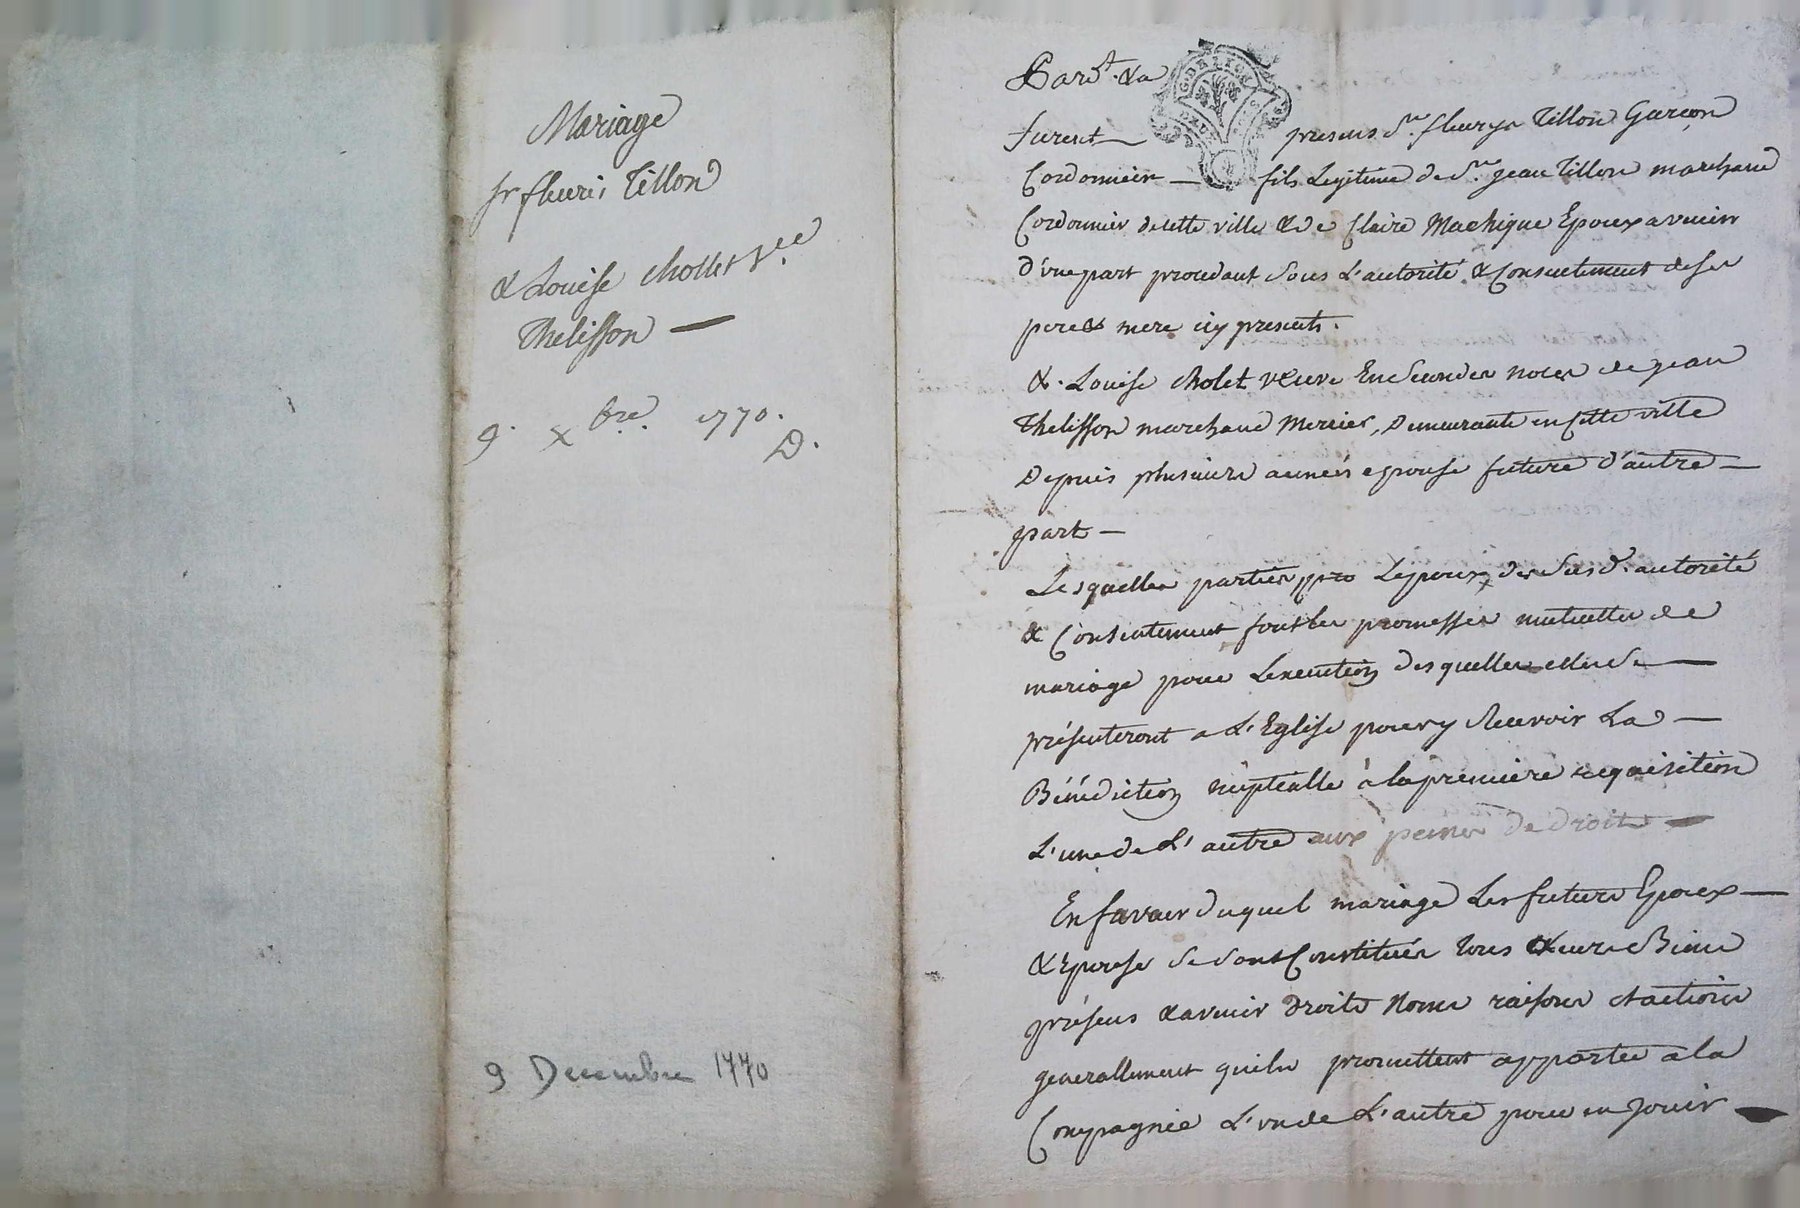 Mariage
Sr fleuris Tillon
& Louise chollet Vee
Thelisson —
9. Xbre. 1770.
D.
9 Decembre 1770
Pard.t &a
furent — presens Sr. fleurys Tillon Garçon
Cordonnier — fils Legitime de Sr. Jean Tillon marchand
Cordonnier decette ville & de Claire Machique Epoux avenir
d'vne part procedant Sous L'autorité & Consentement deses
pere & mere icy presents.
&. Louise cholet veuve En Secondes noces de jean
Thelisson marchand Mercier, Demeurante en Cette ville
Depuis plusieurs années epouse future d'autre —
part —
Lesquelles parties Lepoux, des Susd. autorité
& Consentement font les promesses mutuelles de
mariage pour Lexecution desquelles elles Se —
présenteront a L'Eglise pour y Recevoir La —
Bénédiction nuptialle à la premiere requisition
L'une de L'autre aux peines de droit —
En faveur duquel mariage Les futurs Epoux —
& Epouse Se Sont Constitués tous & leurs Biens
présens & avenir Droits Noms raisons et actions
generallement quils promettent apporter a la
Compagnie L'un de L'autre pour en Jouir —